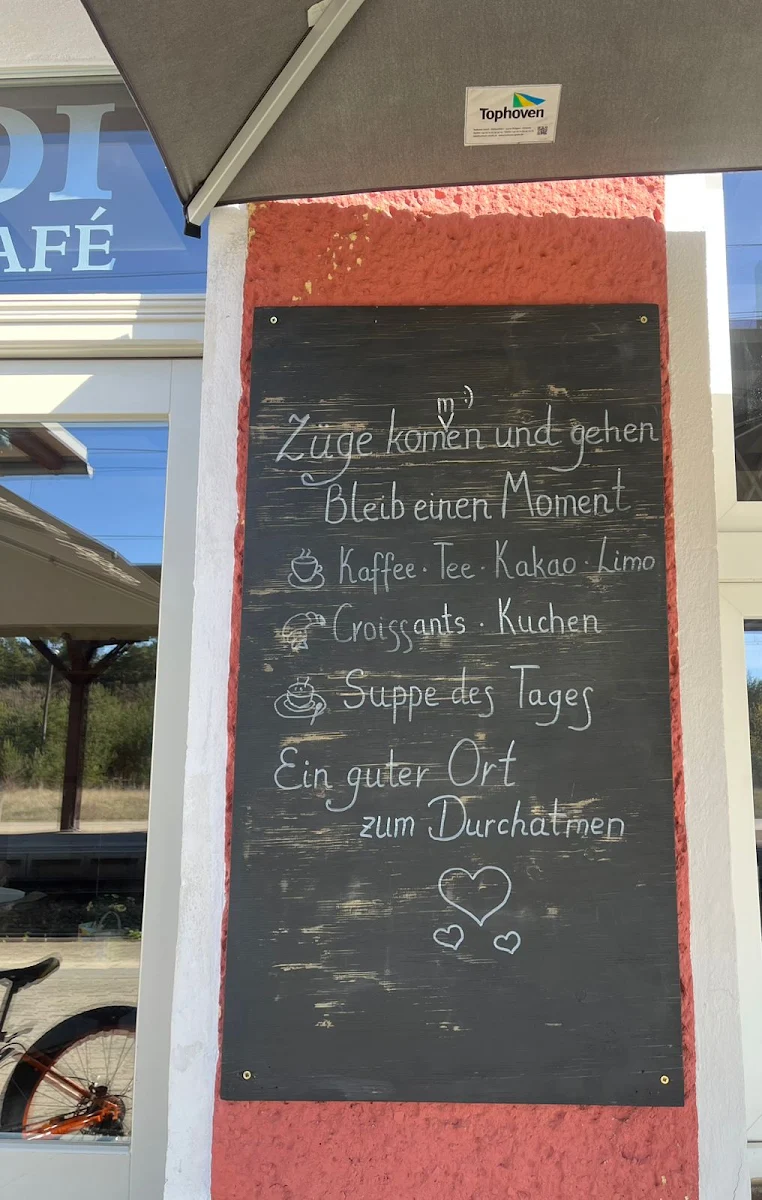 Tophoven
DI
AFÉ
m :)
Züge komen und gehen
Bleib einen Moment
Kaffee · Tee · Kakao · Limo
Croissants · Kuchen
Suppe des Tages
Ein guter Ort
zum Durchatmen